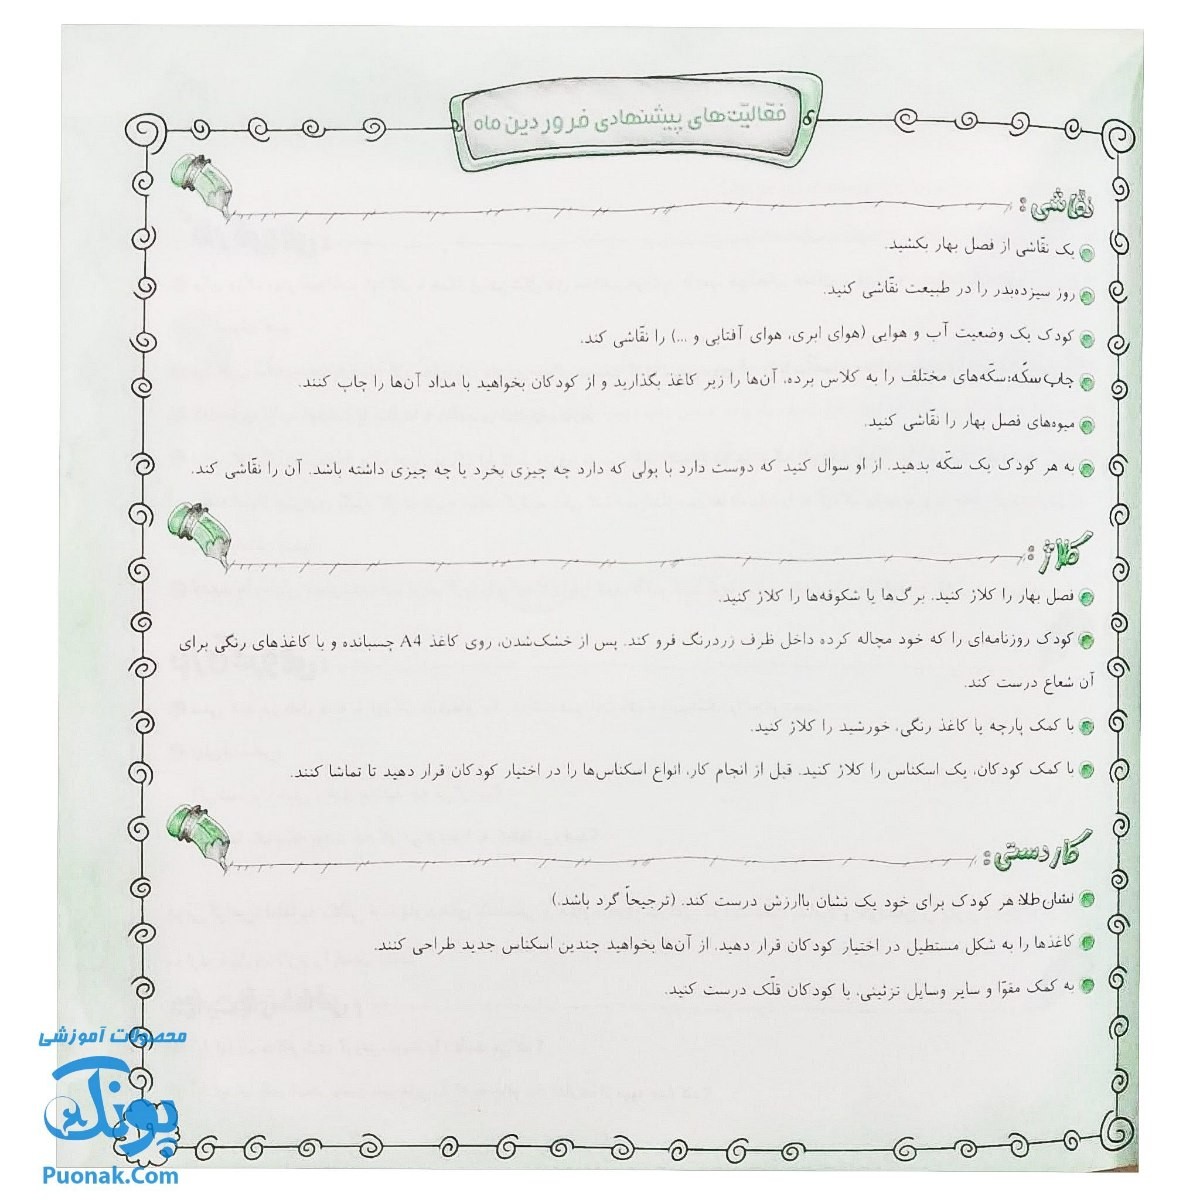 فعّالیّت‌های پیشنهادی فروردین ماه
نقّاشی:
یک نقّاشی از فصل بهار بکشید.
روز سیزده‌بدر را در طبیعت نقّاشی کنید.
کودک یک وضعیت آب و هوایی (هوای ابری، هوای آفتابی و ...) را نقّاشی کند.
چاپ سکّه: سکّه‌های مختلف را به کلاس برده، آن‌ها را زیر کاغذ بگذارید و از کودکان بخواهید با مداد آن‌ها را چاپ کنند.
میوه‌های فصل بهار را نقّاشی کنید.
به هر کودک یک سکّه بدهید. از او سوال کنید که دوست دارد با پولی که دارد چه چیزی بخرد یا چه چیزی داشته باشد. آن را نقّاشی کند.
کلاژ:
فصل بهار را کلاژ کنید. برگ‌ها یا شکوفه‌ها را کلاژ کنید.
کودک روزنامه‌ای را که خود مچاله کرده داخل ظرف زردرنگ فرو کند. پس از خشک‌شدن، روی کاغذ A4 چسبانده و با کاغذهای رنگی برای
آن شعاع درست کند.
با کمک پارچه یا کاغذ رنگی، خورشید را کلاژ کنید.
با کمک کودکان، یک اسکناس را کلاژ کنید. قبل از انجام کار، انواع اسکناس‌ها را در اختیار کودکان قرار دهید تا تماشا کنند.
کاردستی:
نشان طلا: هر کودک برای خود یک نشان باارزش درست کند. (ترجیحاً گرد باشد.)
کاغذها را به شکل مستطیل در اختیار کودکان قرار دهید. از آن‌ها بخواهید چندین اسکناس جدید طراحی کنند.
به کمک مقوّا و سایر وسایل تزئینی، با کودکان قلّک درست کنید.
محصولات آموزشی
پونک
۱۹
Puonak.Com